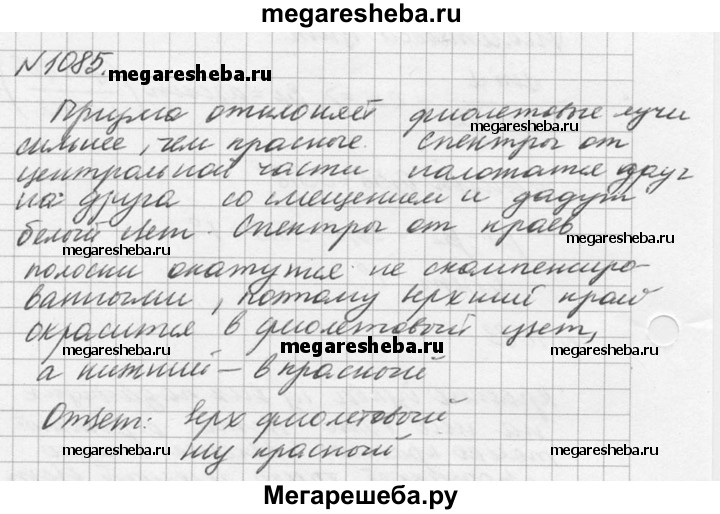 megaresheba.ru
N 1085. megaresheba.ru
Призма отклоняет фиолетовые лучи
megaresheba.ru
megaresheba.ru
сильнее, чем красные. Спектры от
центральной части наложатся друг
на друга со смещением и дадут
megaresheba.ru
megaresheba.ru
белый цвет. Спектры от краев
полоски окажутся не скомпенсиро-
ванными, поэтому верхний край
окрасится в фиолетовый цвет,
megaresheba.ru
megaresheba.ru
megaresheba.ru
а нижний – в красный
Ответ: верх фиолетовый
низ красный
megaresheba.ru
megaresheba.ru
Мегарешеба.ру